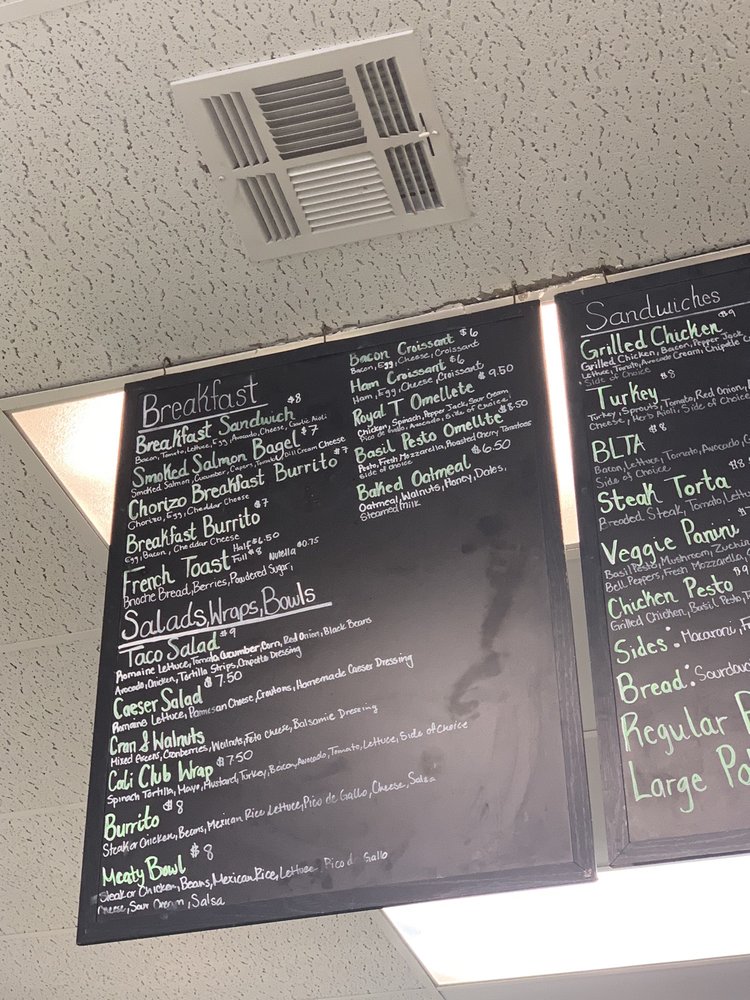 Breakfast
Breakfast Sandwich $8
Bacon, Tomato, Lettuce, Egg, Avocado, Cheese, Garlic Aioli
Smoked Salmon Bagel $7
Smoked Salmon, Cucumber, Capers, Tomato, Dill Cream Cheese
Chorizo Breakfast Burrito $7
Chorizo, Egg, Cheddar Cheese
Breakfast Burrito $7
Egg, Bacon, Cheddar Cheese
French Toast Half $6.50 Full $8 Nutella $0.75
Brioche Bread, Berries, Powdered Sugar,
Bacon Croissant $6
Bacon, Egg, Cheese, Croissant
Ham Croissant $6
Ham, Egg, Cheese, Croissant
Royal T Omellete $9.50
Chicken, Spinach, Pepper Jack, Sour Cream
Pico de Gallo, Avocado, Side of Choice
Basil Pesto Omellite $8.50
Pesto, Fresh Mozzarella, Roasted Cherry Tomatoes
Side of choice
Baked Oatmeal $6.50
Oatmeal, Walnuts, Honey, Dates,
Steamed Milk
Salads, Wraps, Bowls
Taco Salad $9
Romaine Lettuce, Tomato, Cucumber, Corn, Red Onion, Black Beans
Avocado, Chicken, Tortilla Strips, Chipotle Dressing
Caeser Salad $7.50
Romaine Lettuce, Parmesan Cheese, Croutons, Homemade Caeser Dressing
Cran & Walnuts
Mixed Greens, Cranberries, Walnuts, Feta Cheese, Balsamic Dressing
Cali Club Wrap $7.50
Spinach Tortilla, Mayo, Mustard, Turkey, Bacon, Avocado, Tomato, Lettuce, Side of Choice
Burrito $8
Steak or Chicken, Beans, Mexican Rice, Lettuce, Pico de Gallo, Cheese, Salsa
Meaty Bowl $8
Steak or Chicken, Beans, Mexican Rice, Lettuce, Pico d Gallo
Cheese, Sour Cream, Salsa
Sandwiches
Grilled Chicken $9
Grilled Chicken, Bacon, Pepper Jack
Lettuce, Tomato, Avocado Cream, Chipotle
Side of Choice
Turkey $8
Turkey, Sprouts, Tomato, Red Onion,
Cheese, Herb Aioli, Side of Choice
BLTA $8
Bacon, Lettuce, Tomato, Avocado,
Side of Choice
Steak Torta $8
Breaded Steak, Tomato,
Veggie Panini $
Basil Pesto, Mushroom,
Bell Peppers, Fresh Mozzarella,
Chicken Pesto $9
Grilled Chicken, Basil Pesto,
Sides: Macaroni,
Bread:
Regular
Large